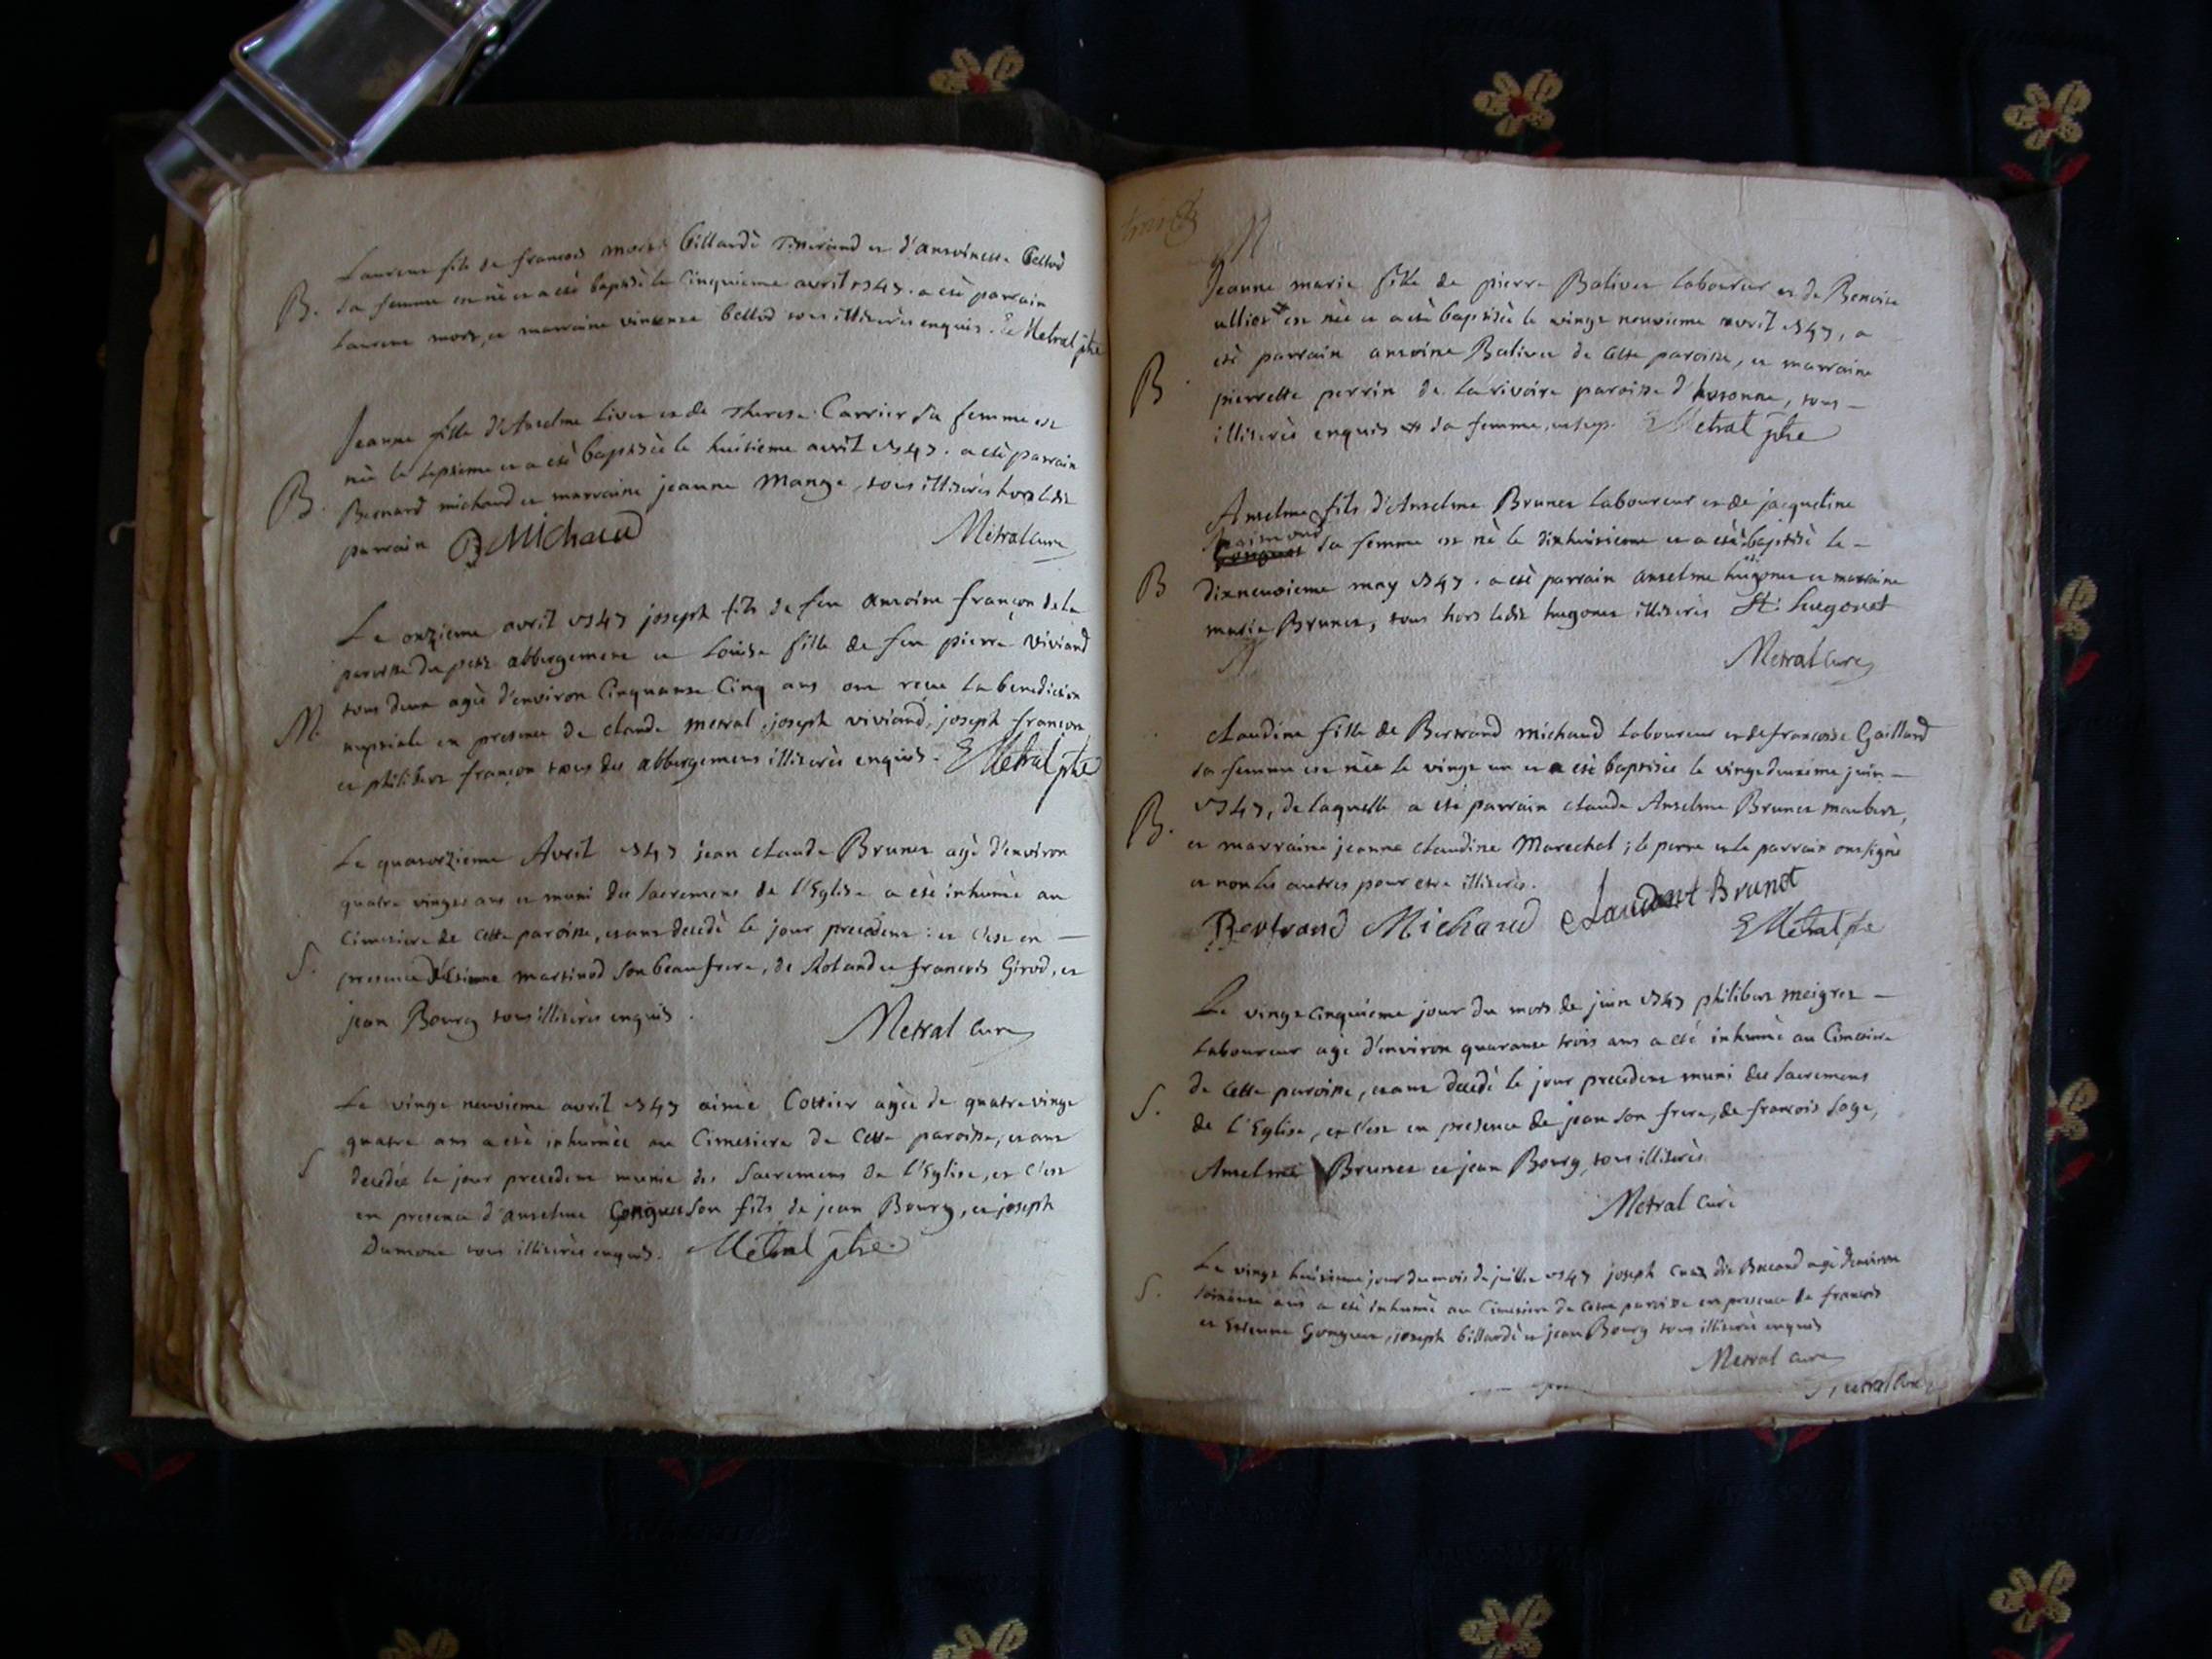 Laurent fils de francois morel billardè Tisserand et d'antoinette Bellod
B. sa femme est nè et a etè baptisè le cinquieme avril 1747. a etè parrain
Laurent morel, et marraine vincence bellod tous illiterès enquis. E Metral ptre
Jeanne fille d'Anselme Livet et de Therese Carrier sa femme est
nèe le septieme et a etè baptisèe le huitieme avril 1747. a etè parrain
B. Bernard michaud et marraine jeanne Mange, tous illiterès hors ledit
parrain B Michaud Metral curè
Le onzieme avril 1747 joseph fils de feu antoine françon de la
paroisse du petit abbergement et Louise fille de feu pierre Viviand
tous deux agès d'environ Cinquante Cinq ans ont reçu la benediction
M. nuptiale en presence de claude metral, joseph viviand, joseph françon
et philibert françon tous des abbergemens illiterès enquis. E Metral ptre
Le quatorzieme Avril 1747 jean claude Brunet agè d'environ
quatre vingts ans et muni des sacremens de l'Eglise a etè inhumè au
Cimetiere de cette paroisse, etant decedè le jour precedent: et c'est en
S. presence d'Estienne martinod son beaufrere, de Roland et francois Girod, et
jean Bourg tous illiterès enquis.
Metral curè
Le vingt neuvieme avril 1747 aimèe Cottier agèe de quatre vingt
quatre ans a etè inhumèe au Cimetiere de cette paroisse, etant
S decedèe le jour precedent munie des sacremens de l'Eglise, et c'est
en presence d'anselme Gonguet son fils, de jean Bourg, et joseph
Dumont tous illiterès enquis. Metral ptre
Jeanne marie fille de pierre Balivet laboureur et de Benoite
ulliet est nèe et a etè baptisèe le vingt neuvieme avril 1747, a
etè parrain antoine Balivet de cette paroisse, et marraine
B pierrette perrin de la rivoire paroisse d'hotonne, tous
illiterès enquis sa femme, E Metral ptre
Anselme fils d'Anselme Brunet laboureur et de jacqueline
sa femme est nè le dixhuitieme et a etè baptisè le
B dixneuvieme may 1747. a etè parrain anselme hugonet et marraine
marie Brunet, tous hors ledit hugonet illiterès hugonet
Metral curè
claudine fille de Bertrand michaud laboureur et de francoise Gaillard
sa femme est nèe le vingt un et a etè baptisèe le vingt deuxieme juin
1747, de laquelle a etè parrain claude Anselme Brunet maubert,
B. et marraine jeanne claudine Marechal; le perre et le parrain ont signè
et non les autres pour etre illiterès.
Bertrand Michaud Brunet
E Metral ptre
Le vingt cinquieme jour du mois de juin 1747 philibert meigret
laboureur agè d'environ quarante trois ans a etè inhumè au Cimetiere
de cette paroisse, etant decedè le jour precedent muni des sacremens
S. de l'Eglise, et c'est en presence de jean son frere, de francois Loge,
Anselme Brunet et jean Bourg, tous illiterès
Metral curè
Le vingt huitieme jour du mois de juillet 1747 joseph dit agè d'environ
S. soixante ans a etè inhumè au Cimetiere de cette paroisse en presence de francois
et Estienne Gonguet, joseph billardè et jean Bourg tous illiterès enquis
Metral curè
Metral curè